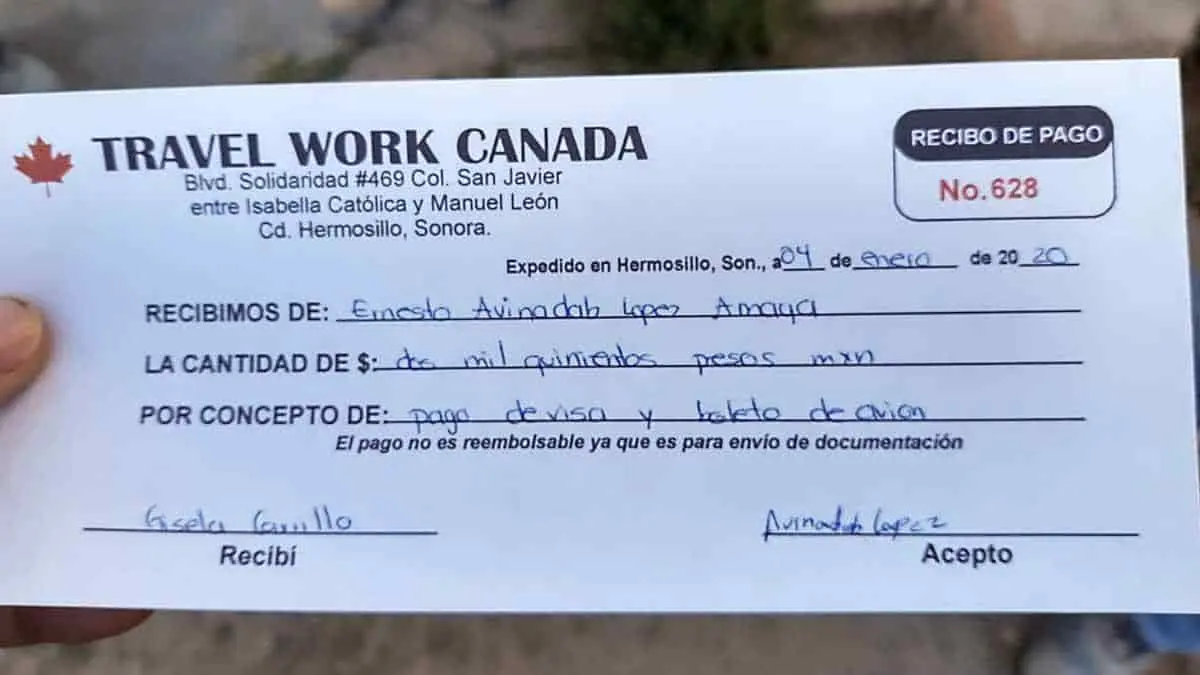 TRAVEL WORK CANADA
Blvd. Solidaridad #469 Col. San Javier
entre Isabella Católica y Manuel León
Cd. Hermosillo, Sonora.
RECIBO DE PAGO
No. 628
Expedido en Hermosillo, Son., a 04 de enero de 20 20
RECIBIMOS DE: Ernesto Avinadab Lopez Amaya
LA CANTIDAD DE $: dos mil quinientos pesos mxn
POR CONCEPTO DE: pago de visa y boleto de avion
El pago no es reembolsable ya que es para envío de documentación
Gisela Carrillo
Recibí
Avinadab Lopez
Acepto